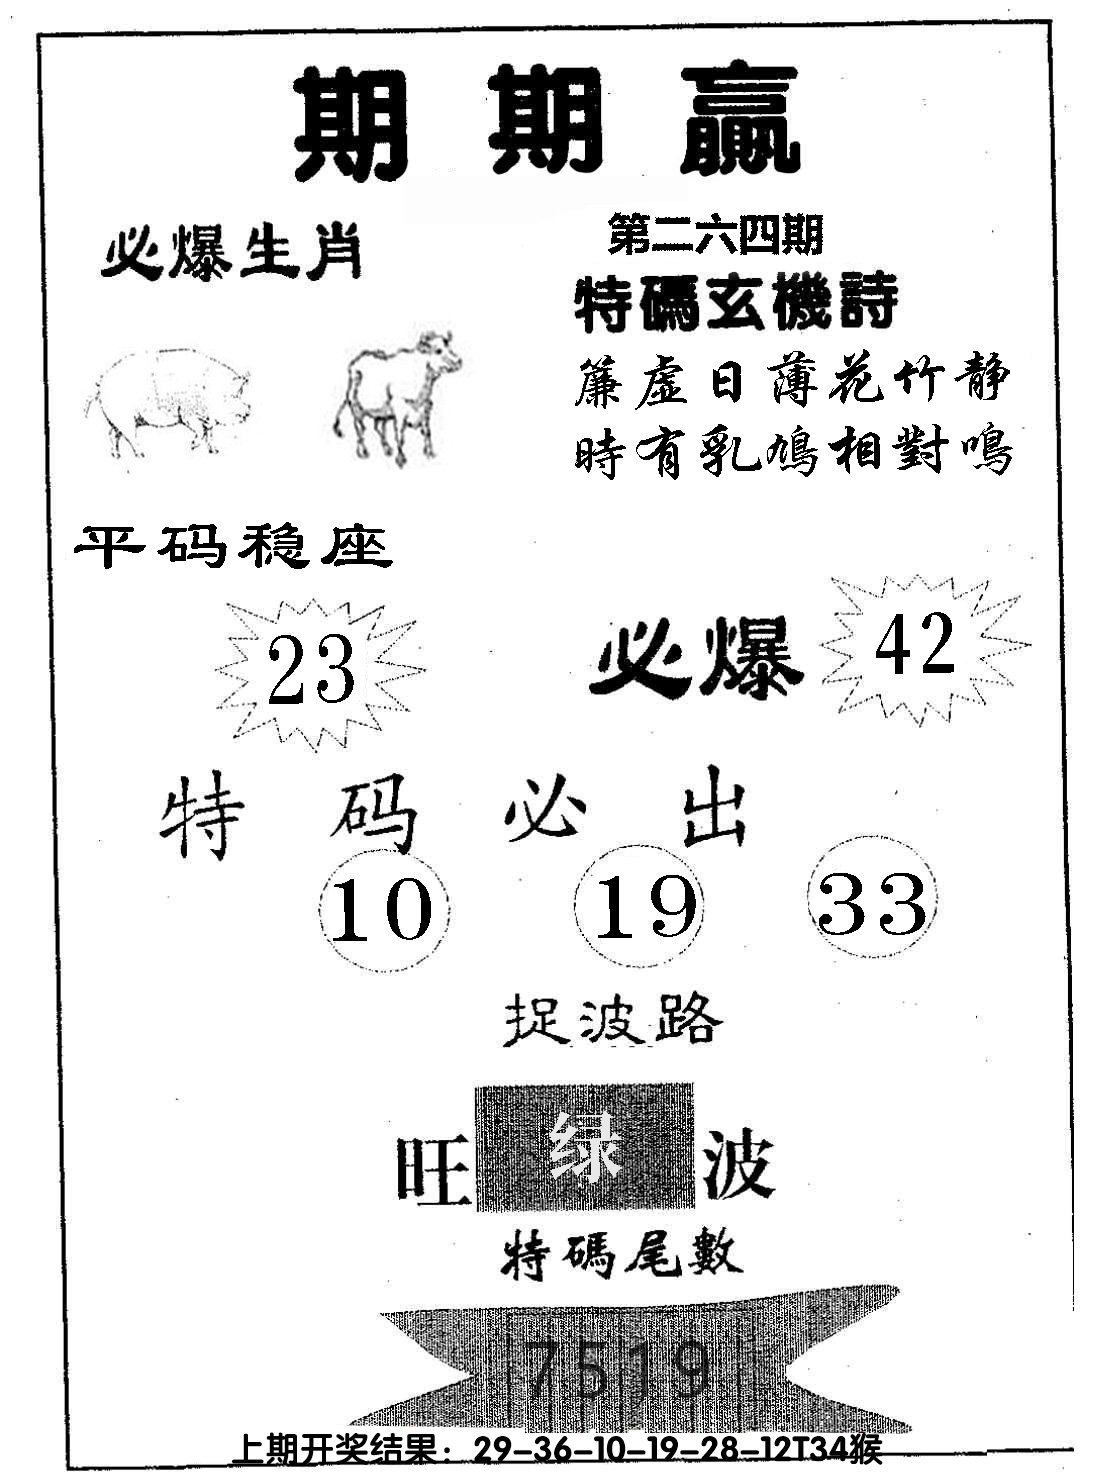 期期赢
必爆生肖
第二六四期
特碼玄機詩
簾虛日薄花竹静
時有乳鳩相對鳴
平码稳座
23
必爆
42
特码必出
10 19 33
捉波路
旺绿波
特碼尾數
7519
上期开奖结果：29-36-10-19-28-12T34猴